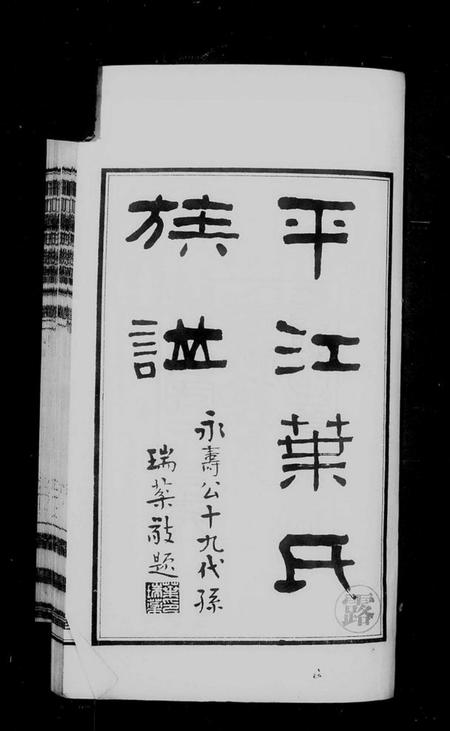 平江葉氏
族譜
永壽公十九代孫
瑞棻敬題
露